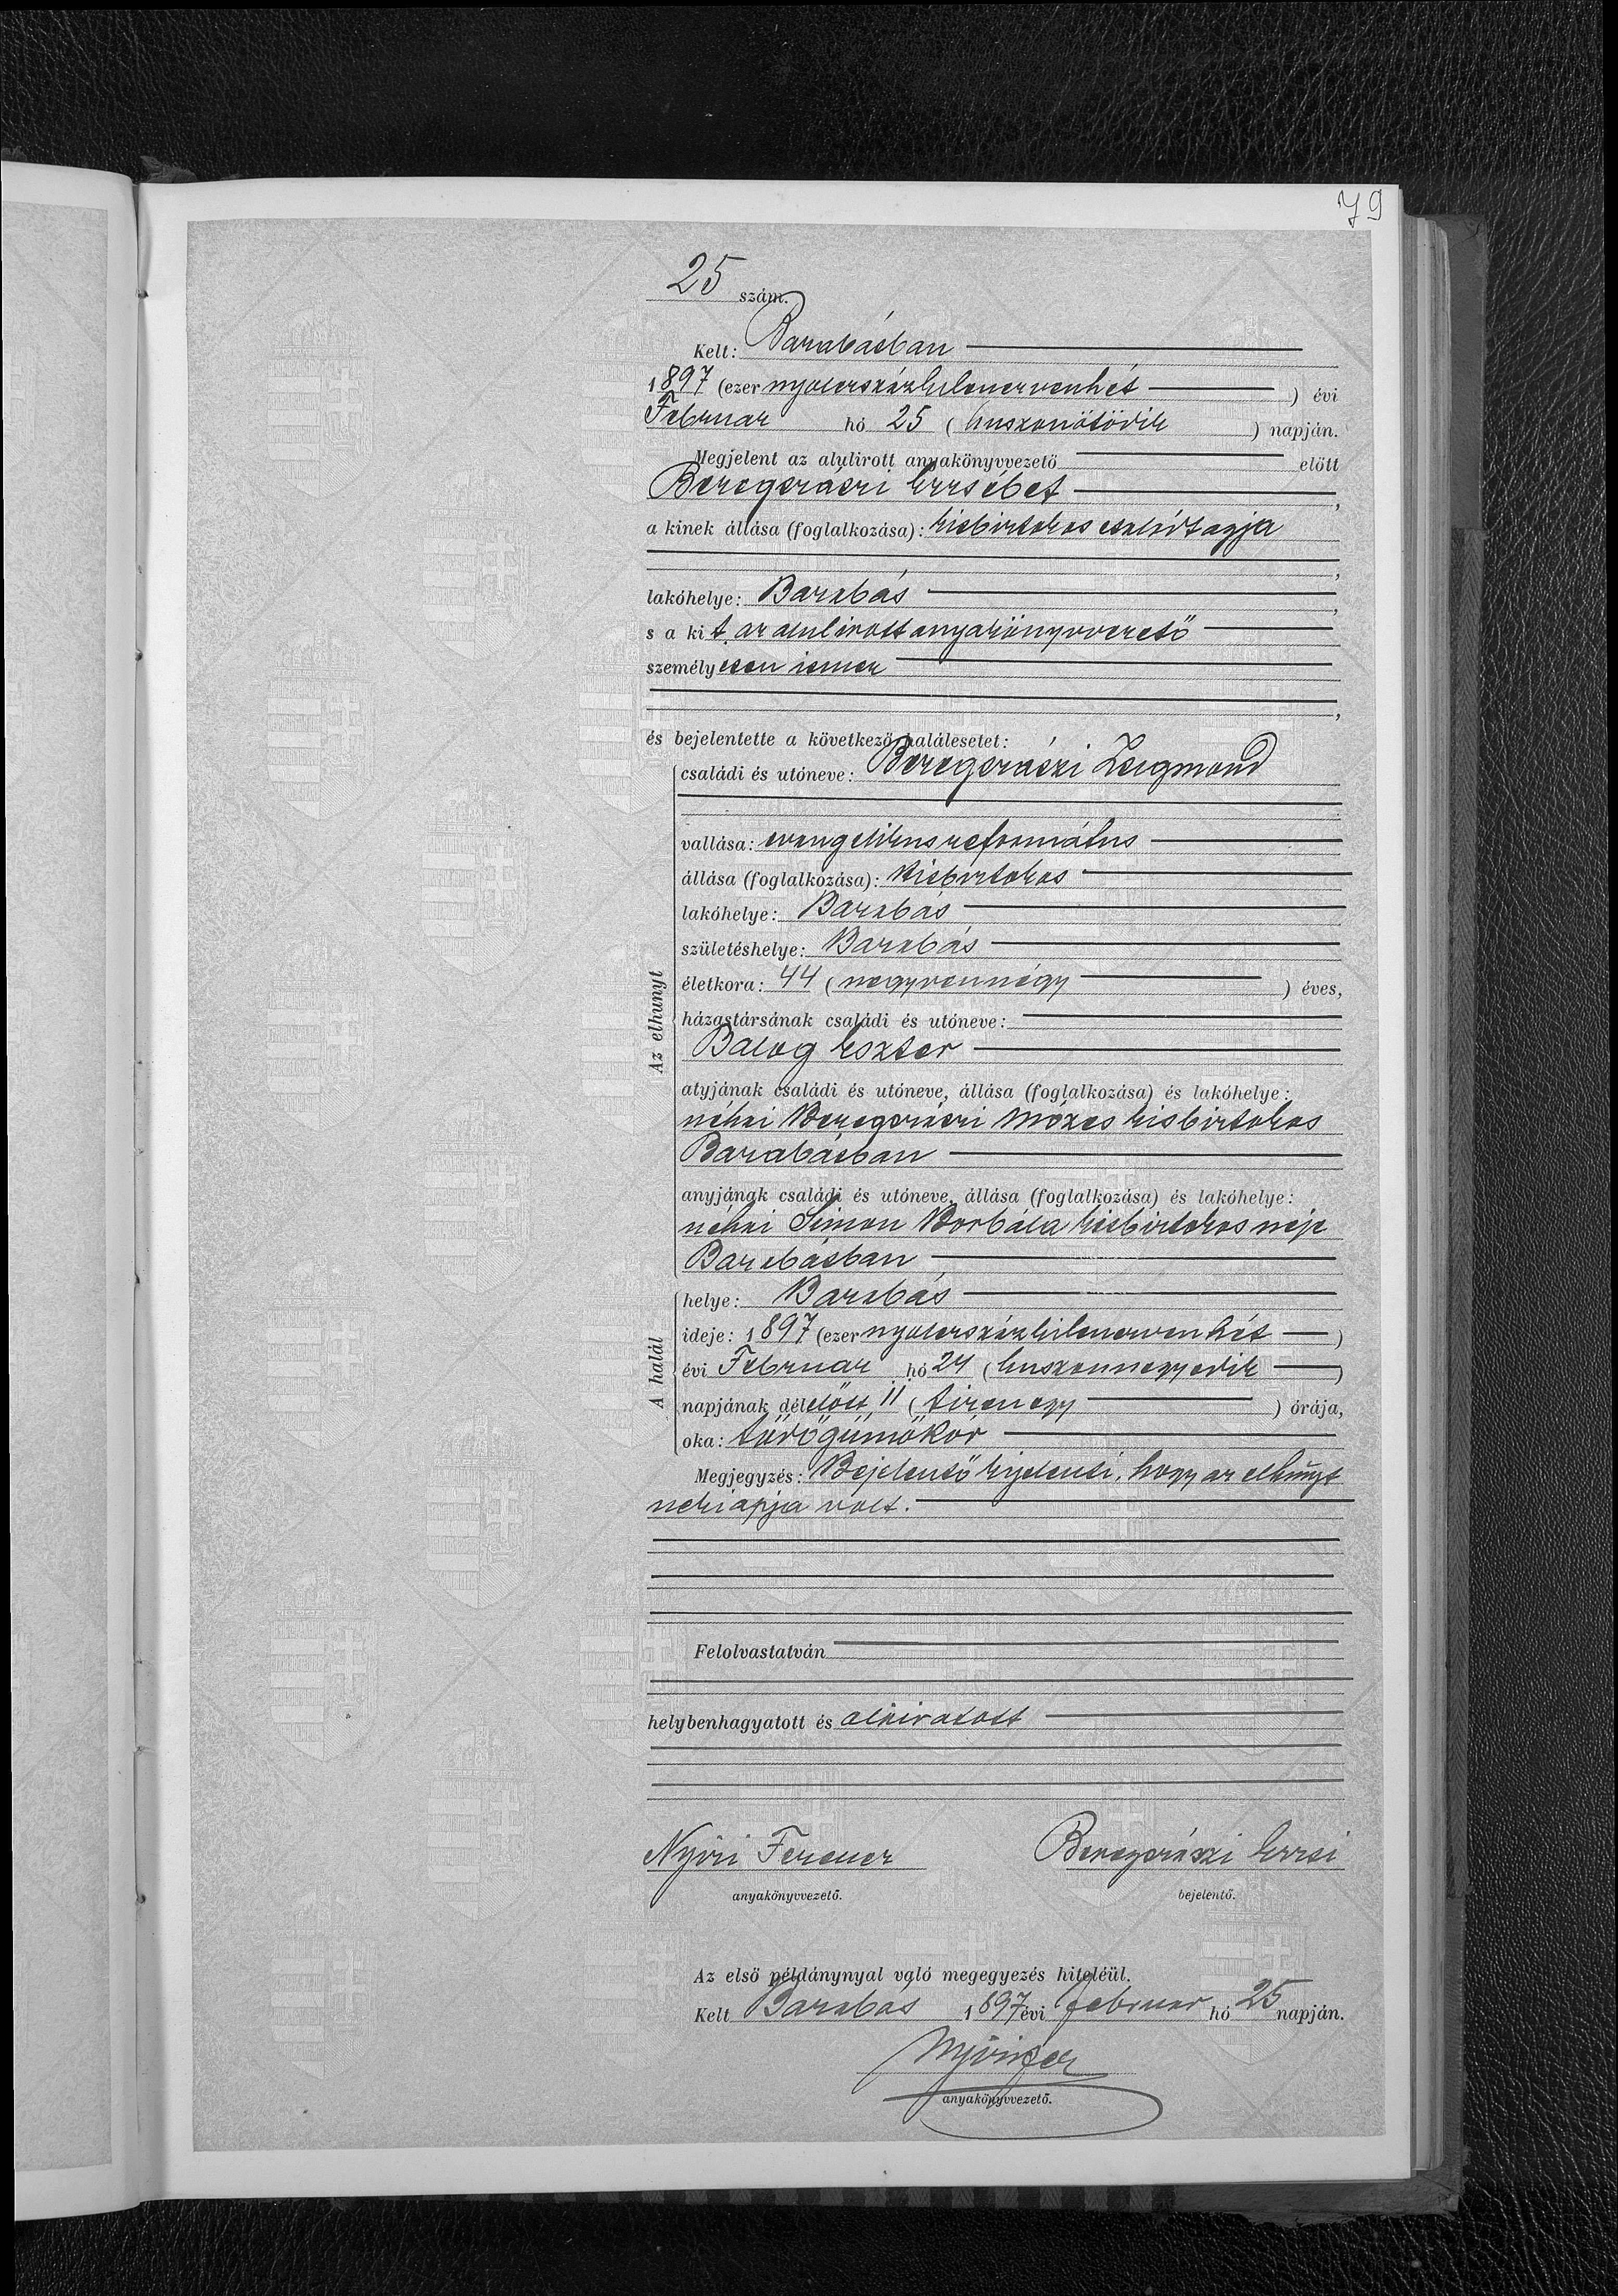 79
25 szám.
Kelt: Barabásban
1897 (ezer nyolczszázkilenczvenhét) évi
Februar hó 25 (huszonötödik) napján.
Megjelent az alulirott anyakönyvvezető előtt
Beregszászi Erzsébet,
a kinek állása (foglalkozása): kisbirtokos családtagja
,
lakóhelye: Barabás,
s a kit, az alulirott anyakönyvvezető
személyesen ismer
,
és bejelentette a következő halálesetet:
Az elhunyt
családi és utóneve: Beregszászi Zsigmond
vallása: evangelikus református
állása (foglalkozása): Kisbirtokos
lakóhelye: Barabás
születéshelye: Barabás
életkora: 44 (negyvennégy) éves,
házastársának családi és utóneve:
Balog Eszter
atyjának családi és utóneve, állása (foglalkozása) és lakóhelye:
néhai Beregszászi Mózes kisbirtokos
Barabásban
anyjának családi és utóneve, állása (foglalkozása) és lakóhelye:
néhai Simon Borbála kisbirtokos neje
Barabásban
A halál
helye: Barabás
ideje: 1897 (ezer nyolczszázkilenczvenhét)
évi Februar hó 24 (huszonnegyedik)
napjának délelőtt 11 (tizenegy) órája,
oka: tüdőgümőkór
Megjegyzés: Bejelentő kijelenti, hogy az elhúnyt
neki apja volt.
Felolvastatván
helybenhagyatott és aláiratott
Nyíri Ferencz
anyakönyvvezető.
Beregszászi Erzsi
bejelentő.
Az első példánynyal való megegyezés hiteléül.
Kelt Barabás 1897 évi februar hó 25 napján.
Nyíri Fer
anyakönyvvezető.